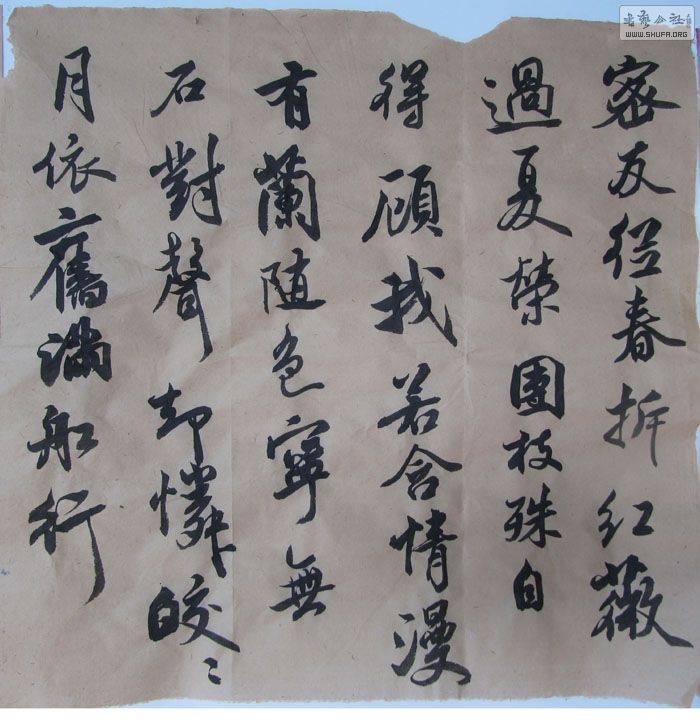 密友従春拆紅薇
過夏榮團枝殊自
得顧我若含情漫
有蘭随色寧無
石對聲却憐皎〻
月依舊滿船行
书艺公社
WWW.SHUFA.ORG